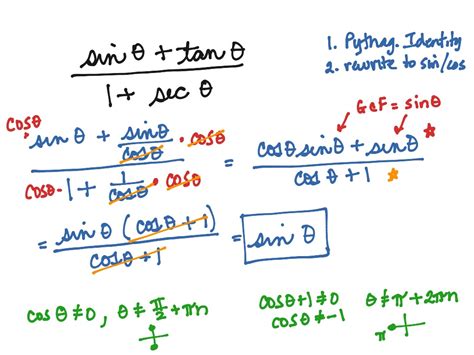 sin θ + tan θ
1 + sec θ
1. Pythag. Identity
2. rewrite to sin/cos
GCF = sinθ
cosθ sin θ + sinθ/cosθ · cosθ
cosθ · 1 + 1/cosθ · cosθ
= cosθ sinθ + sinθ *
cosθ + 1 *
= sinθ (cosθ + 1)
cosθ + 1
= sin θ
cos θ ≠ 0, θ ≠ π/2 + πn
cosθ + 1 ≠ 0
cosθ ≠ -1
θ ≠ π + 2πn
π